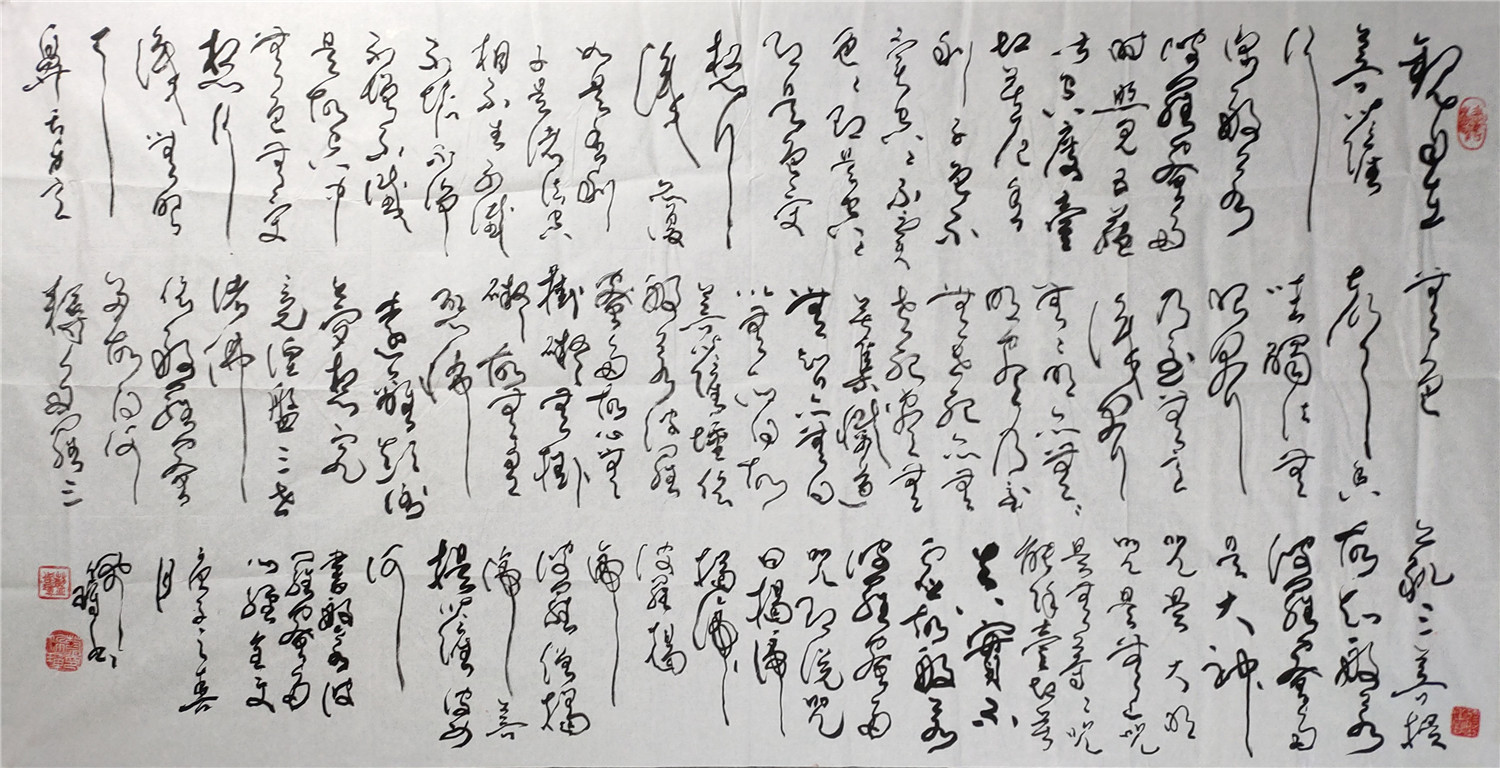 觀自在
菩薩
行
深般若
波羅蜜多
時照見五蘊
皆空度壹
切苦厄舍
利子色不
異空空不異
色色即是空空
即是色受
想行
識亦復
如是舍利
子是諸法空
相不生不滅
不垢不淨
不增不減
是故空中
無色無受
想行
識無眼
耳
鼻舌身意
無色
聲香
味觸法無
眼界
乃至無意
識界
無無明亦無無
明盡乃至
無老死亦無
老死盡無
苦集滅道
無智亦無得
以無所得故
菩提薩埵依
般若波羅
蜜多故心無
掛礙無掛
礙故無有
恐怖
遠離顛倒
夢想究
竟涅盤三世
諸佛
依般若波羅蜜
多故得阿
耨多羅三
藐三菩提
故知般若
波羅蜜多
是大神
咒是大明
咒是無上咒
是無等等咒
能除壹切苦
真實不
虛故般若
波羅蜜多
咒即說咒
曰揭諦
揭諦
波羅揭
諦
波羅僧揭
諦菩
提薩婆
訶
書般若波
羅蜜多
心經全文
庚子之春
月